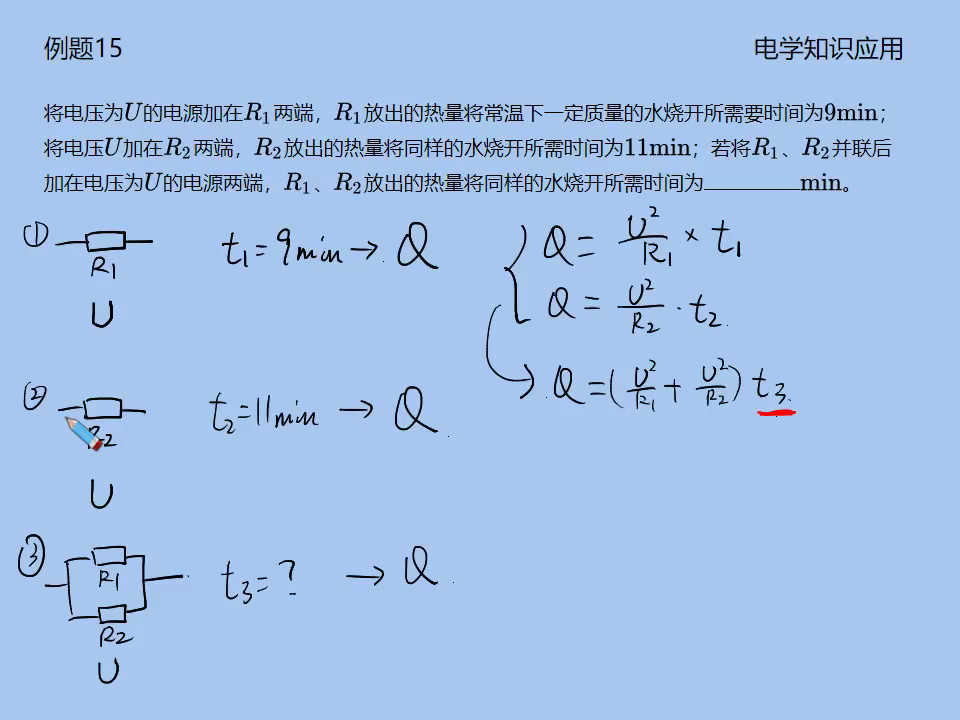 例题15
电学知识应用
将电压为U的电源加在R₁两端，R₁放出的热量将常温下一定质量的水烧开所需要时间为9min；
将电压U加在R₂两端，R₂放出的热量将同样的水烧开所需时间为11min；若将R₁、R₂并联后
加在电压为U的电源两端，R₁、R₂放出的热量将同样的水烧开所需时间为________min。
① R1 U t₁=9min→Q
Q=U²/R₁×t₁
Q=U²/R₂·t₂
Q=(U²/R₁+U²/R₂)t₃
② R2 U t₂=11min→Q
③ R1 R2 U t₃=? →Q